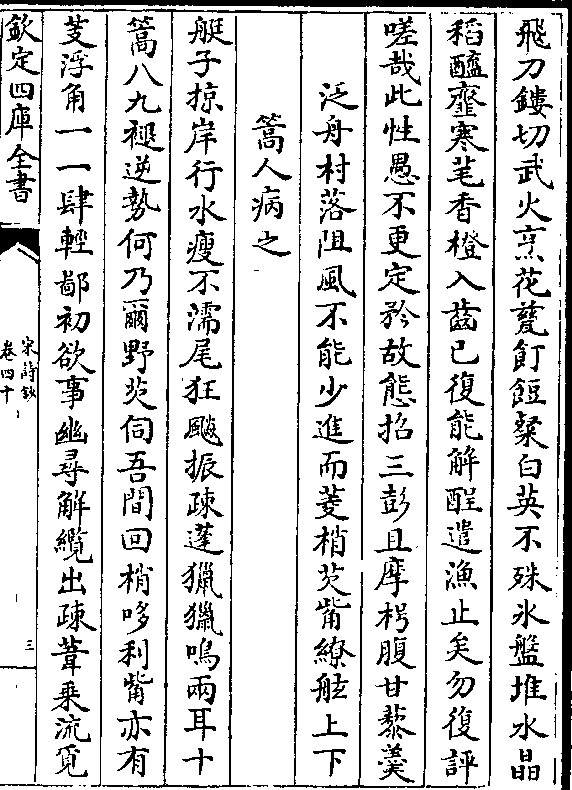 飛刀鏤切武火烹花甆飣餖粲白英不殊氷盤堆水晶
稻醯虀寒芼香橙入齒已復能解酲遣漁止矣勿復評
嗟哉此性愚不更定矜故態招三彭且摩枵腹甘藜羹
泛舟村落阻風不能少進而菱梢芡觜繚舷上下
篙人病之
艇子掠岸行水瘦不濡尾狂飈振疎蓬獵獵鳴兩耳十
篙八九褪逆勢何乃爾野芡伺吾間回梢哆利觜亦有
芰浮角一一肆輕鄙初欲事幽尋解纜出疎葦乗流覓
欽定四庫全書
宋詩鈔
卷四十
三